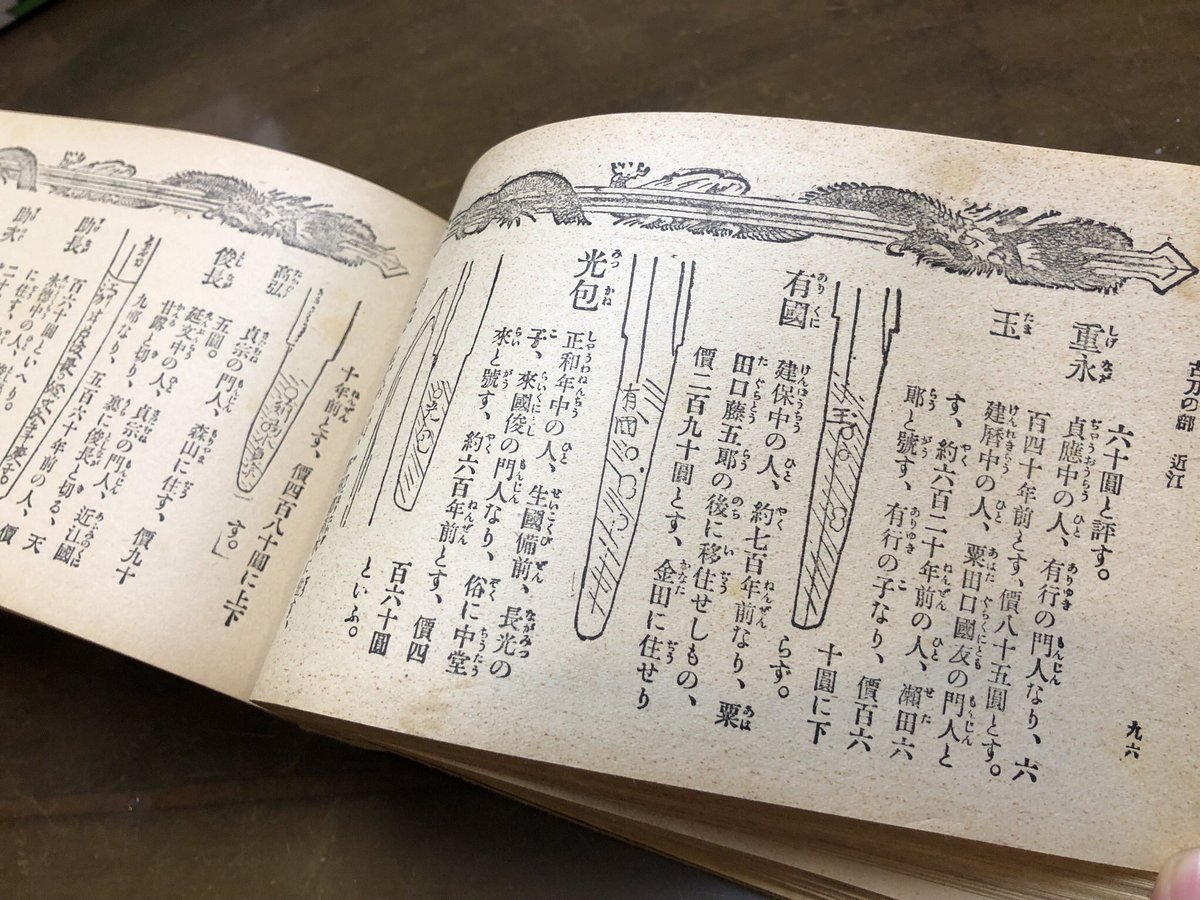 古刀の部 近江
九六
六十圓と評す。
重永 貞應中の人、有行の門人なり、六
百四十年前とす、價八十五圓とす。
玉 建暦中の人、粟田口國友の門人と
す、約六百二十年前の人、瀬田六
郎と號す、有行の子なり、價百六
十圓に下
らず。
玉
有國 建保中の人、約七百年前なり、粟
田口藤五郎の後に移住せしもの、
價二百九十圓とす、金田に住せり
有國
光包 正和年中の人、生國備前、長光の
子、來國俊の門人なり、俗に中堂
來と號す、約六百年前とす、價四
百六十圓
といふ。
光包
十年前とす、價四百八十圓に上下
す。」
高弘 貞宗の門人、森山に住す、價九十
五圓。
俊長 延文中の人、貞宗の門人、近江國
甘露、裏に俊長と切る、天
九鳴なり、五百六十年前の人、價
助長 百六十圓といへり。
助次